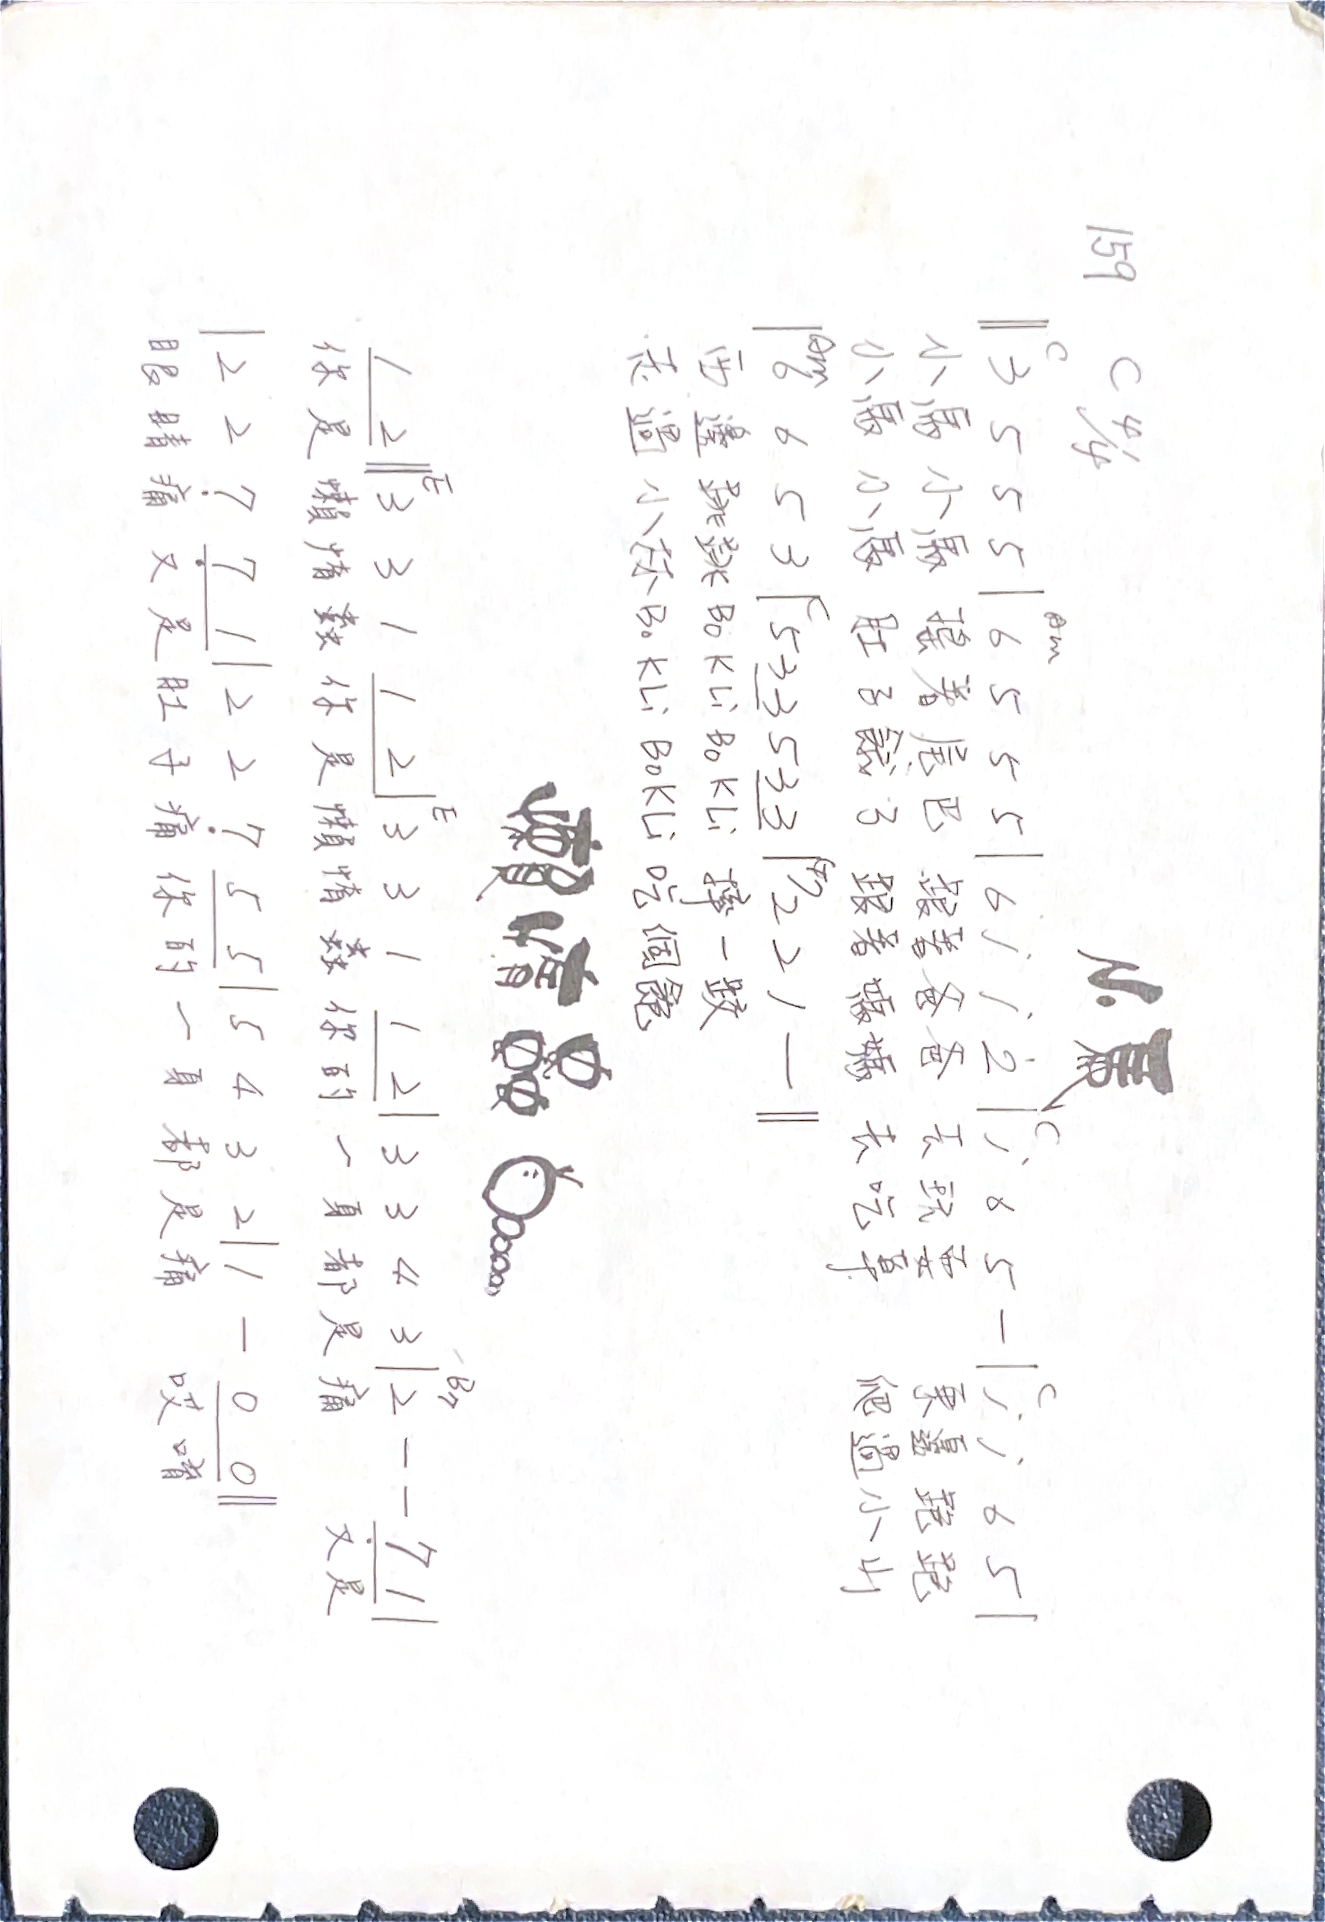 小馬
159 C 4/4
C Am C C
‖ 3 5 5 5 | 6 5 5 5 | 6 i i 2̇ | i 6 5 — | i i 6 5 |
小馬小馬 搖著尾巴 跟著爸爸 去玩耍 東邊跑跑
小馬小馬 肚子餓了 跟著媽媽 去吃草 爬過小山
Am C G7
| 6 6 5 3 | 5 3 3 5 3 3 | 2 2 1 — ‖
西邊跳跳 BoKLi BoKLi 摔一跤
走過小林 BoKLi BoKLi 吃個飽
懶惰蟲
E E B7
1 2 ‖ 3 3 1 1 2 | 3 3 1 1 2 | 3 3 4 3 | 2 — — 7̣ 1 |
你是懶惰蟲 你是懶惰蟲 你的一身都是痛 又是
| 2 2 7̣ 7̣ 1 | 2 2 7̣ 5 5 | 5 4 3 2 | 1 — 0 0 ‖
眼睛痛 又是肚子痛 你的一身都是痛 哎唷